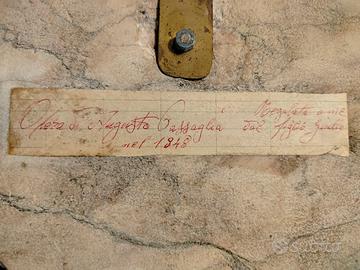 Opera di Augusto Passaglia
nel 1848
Regalata a me
dal figlio Giulio
subito